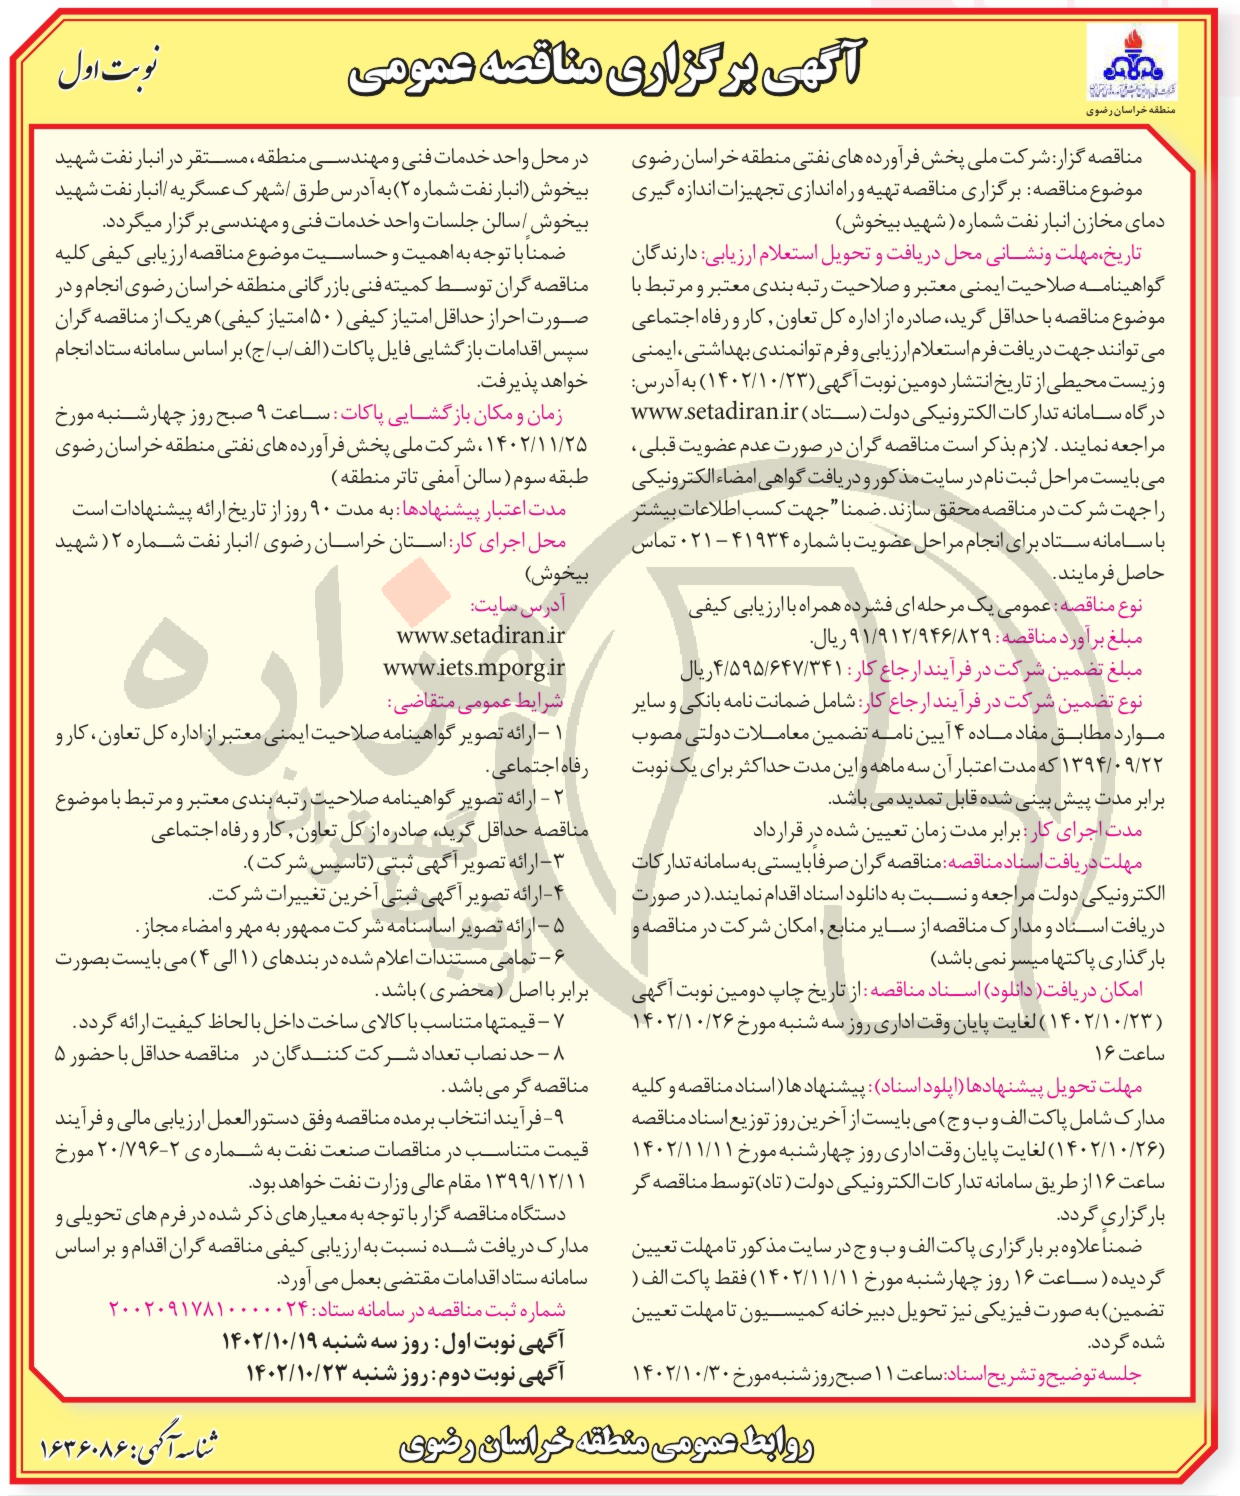 آگهی برگزاری مناقصه عمومی
نوبت اول
منطقه خراسان رضوی
مناقصه گزار: شرکت ملی پخش فرآورده های نفتی منطقه خراسان رضوی
موضوع مناقصه: برگزاری مناقصه تهیه و راه اندازی تجهیزات اندازه گیری
دمای مخازن انبار نفت شماره ( شهید بیخوش)
تاریخ،مهلت ونشانی محل دریافت و تحویل استعلام ارزیابی: دارندگان
گواهینامه صلاحیت ایمنی معتبر و صلاحیت رتبه بندی معتبر و مرتبط با
موضوع مناقصه با حداقل گرید، صادره از اداره کل تعاون , کار و رفاه اجتماعی
می توانند جهت دریافت فرم استعلام ارزیابی و فرم توانمندی بهداشتی ، ایمنی
و زیست محیطی از تاریخ انتشار دومین نوبت آگهی (۱۴۰۲/۱۰/۲۳) به آدرس:
درگاه سامانه تدارکات الکترونیکی دولت (ستاد) www.setadiran.ir
مراجعه نمایند. لازم بذکر است مناقصه گران در صورت عدم عضویت قبلی ،
می بایست مراحل ثبت نام در سایت مذکور و دریافت گواهی امضاء الکترونیکی
را جهت شرکت در مناقصه محقق سازند. ضمنا" جهت کسب اطلاعات بیشتر
با سامانه ستاد برای انجام مراحل عضویت با شماره ۴۱۹۳۴ – ۰۲۱ تماس
حاصل فرمایند.
نوع مناقصه : عمومی یک مرحله ای فشرده همراه با ارزیابی کیفی
مبلغ برآورد مناقصه : ۹۱/۹۱۲/۹۴۶/۸۲۹ ریال.
مبلغ تضمین شرکت در فرآیند ارجاع کار : ۴/۵۹۵/۶۴۷/۳۴۱ریال
نوع تضمین شرکت در فرآیند ارجاع کار: شامل ضمانت نامه بانکی و سایر
موارد مطابق مفاد ماده ۴ آیین نامه تضمین معاملات دولتی مصوب
۱۳۹۴/۰۹/۲۲ که مدت اعتبار آن سه ماهه و این مدت حداکثر برای یک نوبت
برابر مدت پیش بینی شده قابل تمدید می باشد.
مدت اجرای کار : برابر مدت زمان تعیین شده در قرارداد
مهلت دریافت اسناد مناقصه: مناقصه گران صرفاً بایستی به سامانه تدارکات
الکترونیکی دولت مراجعه و نسبت به دانلود اسناد اقدام نمایند.( در صورت
دریافت اسناد و مدارک مناقصه از سایر منابع , امکان شرکت در مناقصه و
بارگذاری پاکتها میسر نمی باشد)
امکان دریافت( دانلود) اسناد مناقصه : از تاریخ چاپ دومین نوبت آگهی
( ۱۴۰۲/۱۰/۲۳) لغایت پایان وقت اداری روز سه شنبه مورخ ۱۴۰۲/۱۰/۲۶
ساعت ۱۶
مهلت تحویل پیشنهادها (اپلود اسناد): پیشنهاد ها (اسناد مناقصه و کلیه
مدارک شامل پاکت الف و ب و ج) می بایست از آخرین روز توزیع اسناد مناقصه
(۱۴۰۲/۱۰/۲۶) لغایت پایان وقت اداری روز چهارشنبه مورخ ۱۴۰۲/۱۱/۱۱
ساعت ۱۶ از طریق سامانه تدارکات الکترونیکی دولت ( تاد) توسط مناقصه گر
بارگزاری گردد.
ضمناً علاوه بر بارگزاری پاکت الف و ب و ج در سایت مذکور تا مهلت تعیین
گردیده ( ساعت ۱۶ روز چهارشنبه مورخ ۱۴۰۲/۱۱/۱۱) فقط پاکت الف (
تضمین) به صورت فیزیکی نیز تحویل دبیرخانه کمیسیون تا مهلت تعیین
شده گردد.
جلسه توضیح و تشریح اسناد: ساعت ۱۱ صبح روز شنبه مورخ ۱۴۰۲/۱۰/۳۰
در محل واحد خدمات فنی و مهندسی منطقه ، مستقر در انبار نفت شهید
بیخوش (انبار نفت شماره ۲) به آدرس طرق / شهرک عسگریه / انبار نفت شهید
بیخوش / سالن جلسات واحد خدمات فنی و مهندسی برگزار میگردد.
ضمناً با توجه به اهمیت و حساسیت موضوع مناقصه ارزیابی کیفی کلیه
مناقصه گران توسط کمیته فنی بازرگانی منطقه خراسان رضوی انجام و در
صورت احراز حداقل امتیاز کیفی ( ۵۰امتیاز کیفی) هریک از مناقصه گران
سپس اقدامات بازگشایی فایل پاکات (الف/ب/ج) بر اساس سامانه ستاد انجام
خواهد پذیرفت.
زمان و مکان بازگشایی پاکات : ساعت ۹ صبح روز چهارشنبه مورخ
۱۴۰۲/۱۱/۲۵ ، شرکت ملی پخش فرآورده های نفتی منطقه خراسان رضوی
طبقه سوم ( سالن آمفی تاتر منطقه )
مدت اعتبار پیشنهادها: به مدت ۹۰ روز از تاریخ ارائه پیشنهادات است
محل اجرای کار: استان خراسان رضوی / انبار نفت شماره ۲ ( شهید
بیخوش)
آدرس سایت:
www.setadiran.ir
www.iets.mporg.ir
شرایط عمومی متقاضی:
۱ –ارائه تصویر گواهینامه صلاحیت ایمنی معتبر از اداره کل تعاون ، کار و
رفاه اجتماعی .
۲ – ارائه تصویر گواهینامه صلاحیت رتبه بندی معتبر و مرتبط با موضوع
مناقصه حداقل گرید، صادره از کل تعاون , کار و رفاه اجتماعی
۳–ارائه تصویر آگهی ثبتی (تاسیس شرکت ).
۴–ارائه تصویر آگهی ثبتی آخرین تغییرات شرکت.
۵ – ارائه تصویر اساسنامه شرکت ممهور به مهر و امضاء مجاز .
۶ – تمامی مستندات اعلام شده در بندهای (۱ الی ۴) می بایست بصورت
برابر با اصل ( محضری ) باشد .
۷ – قیمتها متناسب با کالای ساخت داخل با لحاظ کیفیت ارائه گردد .
۸ – حد نصاب تعداد شرکت کنندگان در مناقصه حداقل با حضور ۵
مناقصه گر می باشد .
۹–فرآیند انتخاب برمده مناقصه وفق دستورالعمل ارزیابی مالی و فرآیند
قیمت متناسب در مناقصات صنعت نفت به شماره ی ۲-۲۰/۷۹۶ مورخ
۱۳۹۹/۱۲/۱۱ مقام عالی وزارت نفت خواهد بود.
دستگاه مناقصه گزار با توجه به معیارهای ذکر شده در فرم های تحویلی و
مدارک دریافت شده نسبت به ارزیابی کیفی مناقصه گران اقدام و بر اساس
سامانه ستاد اقدامات مقتضی بعمل می آورد.
شماره ثبت مناقصه در سامانه ستاد: ۲۰۰۲۰۹۱۷۸۱۰۰۰۰۰۲۴
آگهی نوبت اول : روز سه شنبه ۱۴۰۲/۱۰/۱۹
آگهی نوبت دوم : روز شنبه ۱۴۰۲/۱۰/۲۳
روابط عمومی منطقه خراسان رضوی
شناسه آگهی: ۱۶۳۶۰۸۶
هزاره